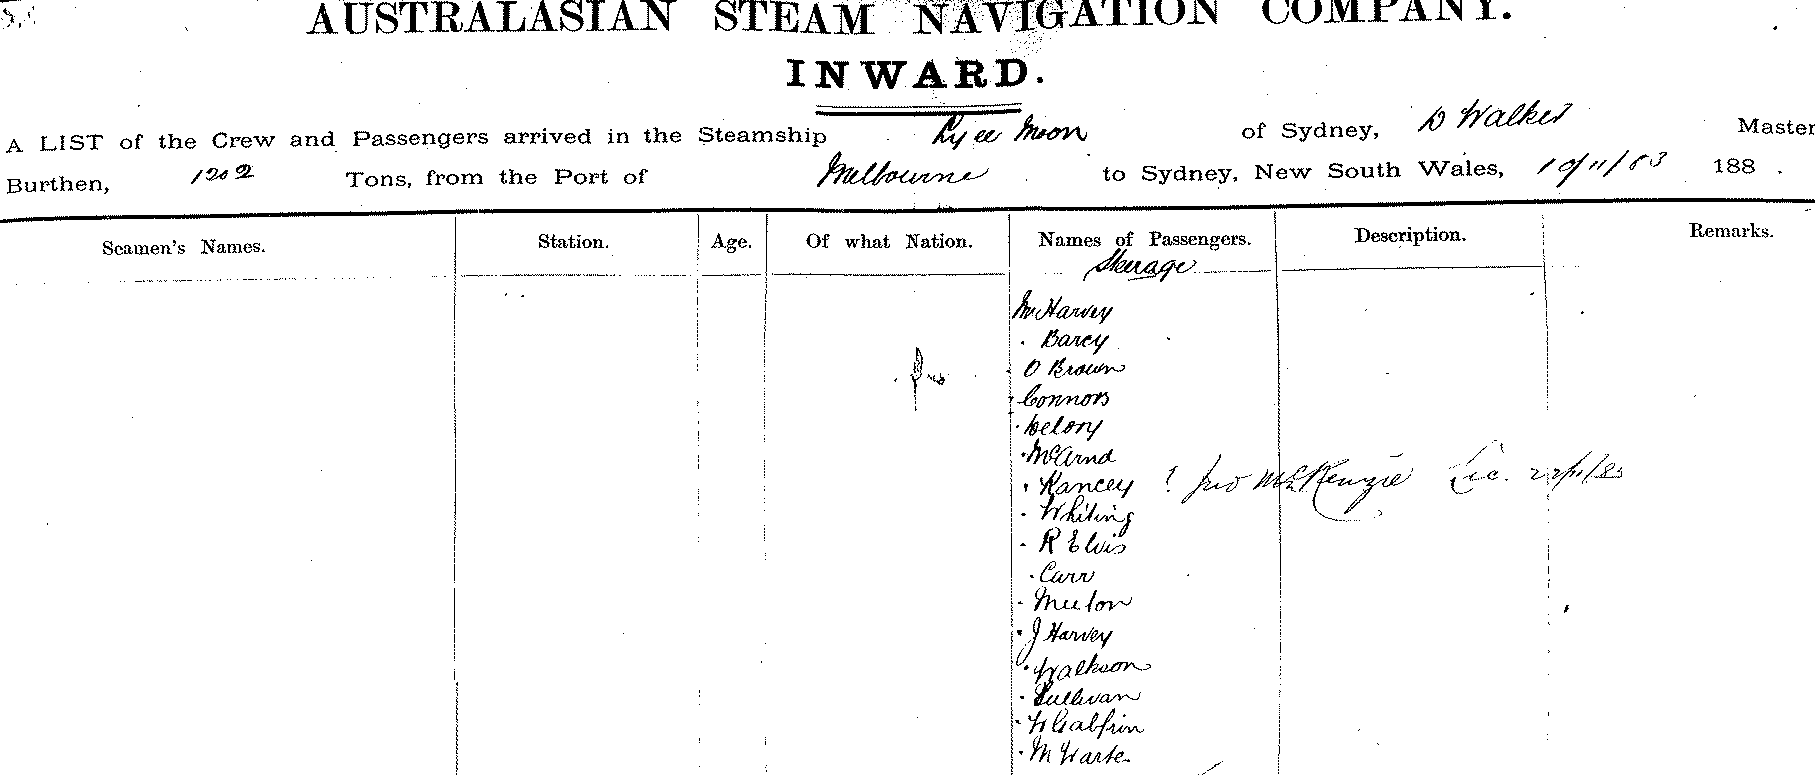 AUSTRALASIAN STEAM NAVIGATION COMPANY.
INWARD.
A LIST of the Crew and Passengers arrived in the Steamship Ly ee Moon of Sydney, D Walker Master
Burthen, 1202 Tons, from the Port of Melbourne to Sydney, New South Wales, 10/11/83 188 .
Seamen's Names. Station. Age. Of what Nation. Names of Passengers. Description. Remarks.
Steerage
Mr Harvey
Barcy
O Brown
Connors
Delory
Kancey ? Jno McKenzie Lic.
Whiting
R Elvis
Carr
J Harvey
Sullivan